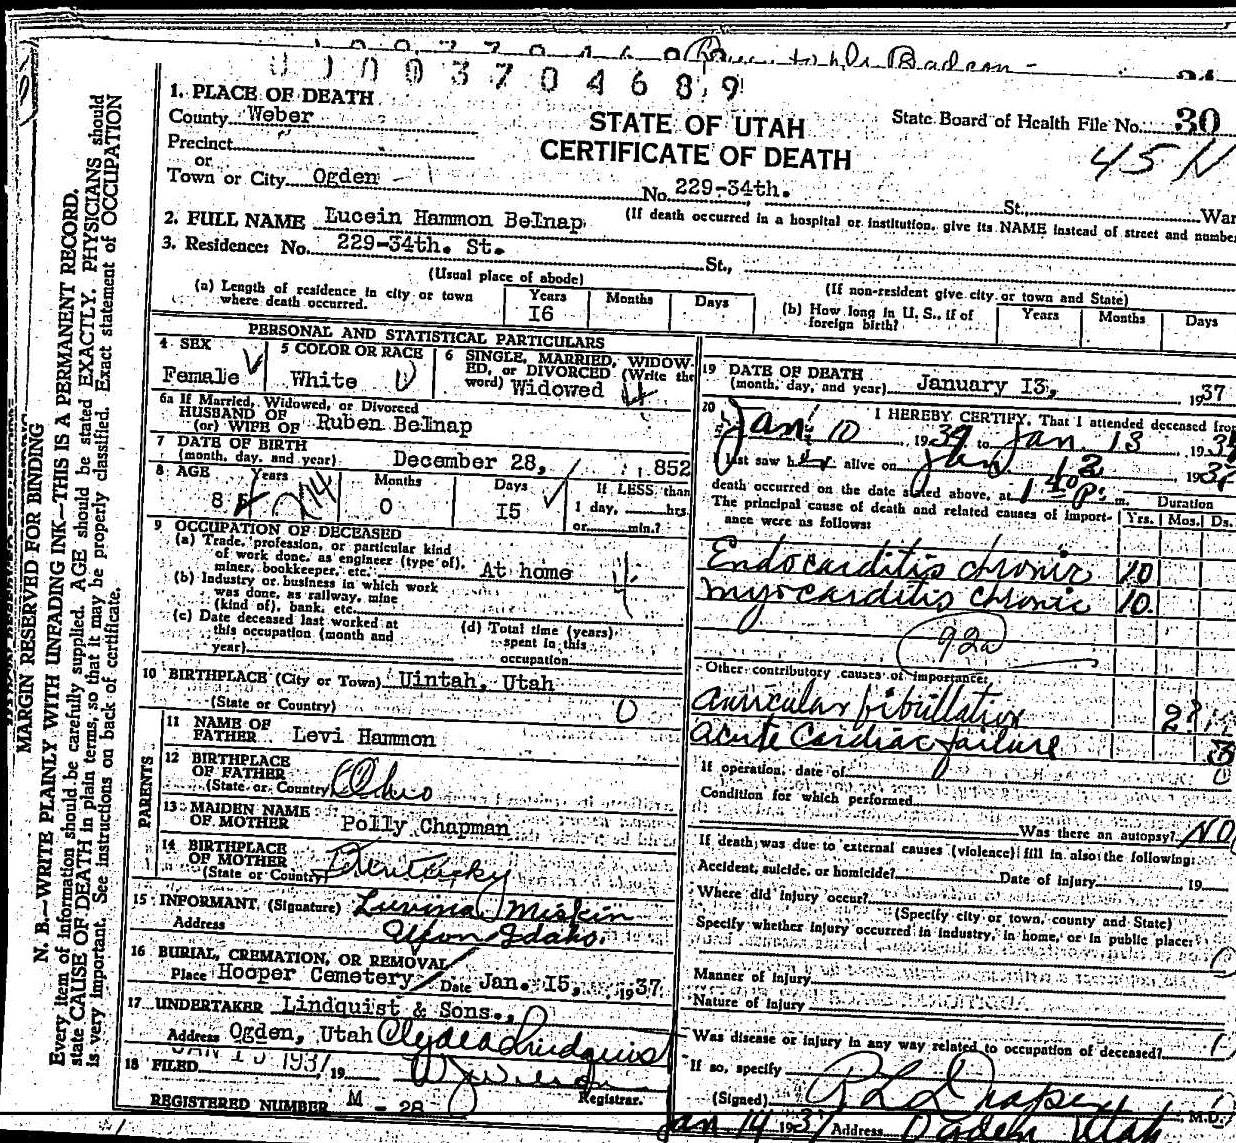 0 1 0 0 3 7 0 4 6 8 9
1. PLACE OF DEATH
County Weber
Precinct
or
Town or City Ogden
STATE OF UTAH
CERTIFICATE OF DEATH
State Board of Health File No. 30
45 N
No. 229-34th. St.,
(If death occurred in a hospital or institution, give its NAME instead of street and number
2. FULL NAME Lucein Hammon Belnap
3. Residence: No. 229-34th. St. St.,
(Usual place of abode)
(If non-resident give city or town and State)
(a) Length of residence in city or town where death occurred. Years I6 Months Days
(b) How long in U. S., if of foreign birth? Years Months Days
PERSONAL AND STATISTICAL PARTICULARS
4 SEX Female
5 COLOR OR RACE White
6 SINGLE, MARRIED, WIDOWED, or DIVORCED (Write the word) Widowed
6a If Married, Widowed, or Divorced
HUSBAND OF
(or) WIFE OF Ruben Belnap
7 DATE OF BIRTH
(month, day, and year) December 28, 1852
8 AGE Years Months 0 Days I5
If LESS than
1 day, hrs.
or min.?
9 OCCUPATION OF DECEASED
(a) Trade, profession, or particular kind
of work done, as engineer (type of),
miner, bookkeeper, etc. At home
(b) Industry or business in which work
was done, as railway, mine
(kind of), bank, etc.
(c) Date deceased last worked at
this occupation (month and
year)
(d) Total time (years)
spent in this
occupation
10 BIRTHPLACE (City or Town) Uintah, Utah
(State or Country)
PARENTS
11 NAME OF
FATHER Levi Hammon
12 BIRTHPLACE
OF FATHER
(State or Country) Ohio
13 MAIDEN NAME
OF MOTHER Polly Chapman
14 BIRTHPLACE
OF MOTHER
(State or Country) Kentucky
15 INFORMANT (Signature) Luvina Miskin
Address Idaho.
16 BURIAL, CREMATION, OR REMOVAL
Place Hooper Cemetery Date Jan. I5, 1937
17 UNDERTAKER Lindquist & Sons.,
Address Ogden, Utah Clyde Lindquist
18 FILED JAN 15 1937, 19
Wilson
Registrar.
REGISTERED NUMBER M - 28
19 DATE OF DEATH
(month, day, and year) January I3, 1937
20 I HEREBY CERTIFY, That I attended deceased from
Jan 10, 19 to Jan 13, 1937
I last saw her alive on Jan 12, 1937
death occurred on the date stated above, at 1 40 P. m.
The principal cause of death and related causes of importance were as follows:
Duration
Yrs. Mos. Ds.
Endocarditis chronic 10
myocarditis chronic 10
92a
Other contributory causes of importance:
auricular fibrillation 2?
acute cardiac failure 3
If operation, date of
Condition for which performed
Was there an autopsy? NO
If death was due to external causes (violence) fill in also the following:
Accident, suicide, or homicide? Date of injury 19
Where did injury occur?
(Specify city or town, county and State)
Specify whether injury occurred in industry, in home, or in public place:
Manner of Injury
Nature of Injury
Was disease or injury in any way related to occupation of deceased?
If so, specify
(Signed) R L Draper, M.D.
Jan 14 1937 Address Ogden Utah
MARGIN RESERVED FOR BINDING
N. B.—WRITE PLAINLY WITH UNFADING INK—THIS IS A PERMANENT RECORD.
Every item of information should be carefully supplied. AGE should be stated EXACTLY. PHYSICIANS should
state CAUSE OF DEATH in plain terms, so that it may be properly classified. Exact statement of OCCUPATION
is very important. See instructions on back of certificate.